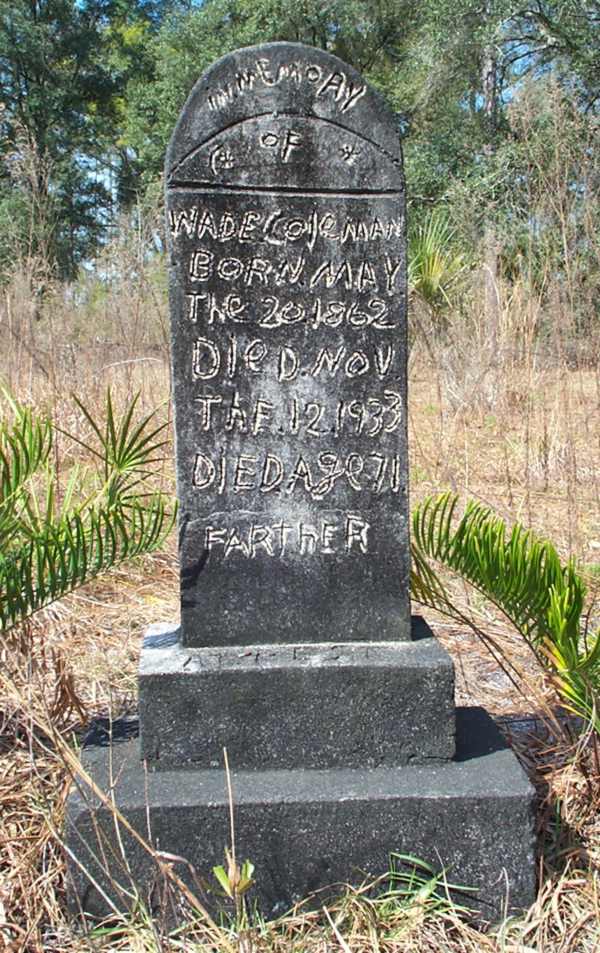 IN MEMORY
OF
WADE.COleMAN
BORN.MAY
The 20.1862
DIeD.NOV
ThE.12.1933
DIED.Age71
FARThER